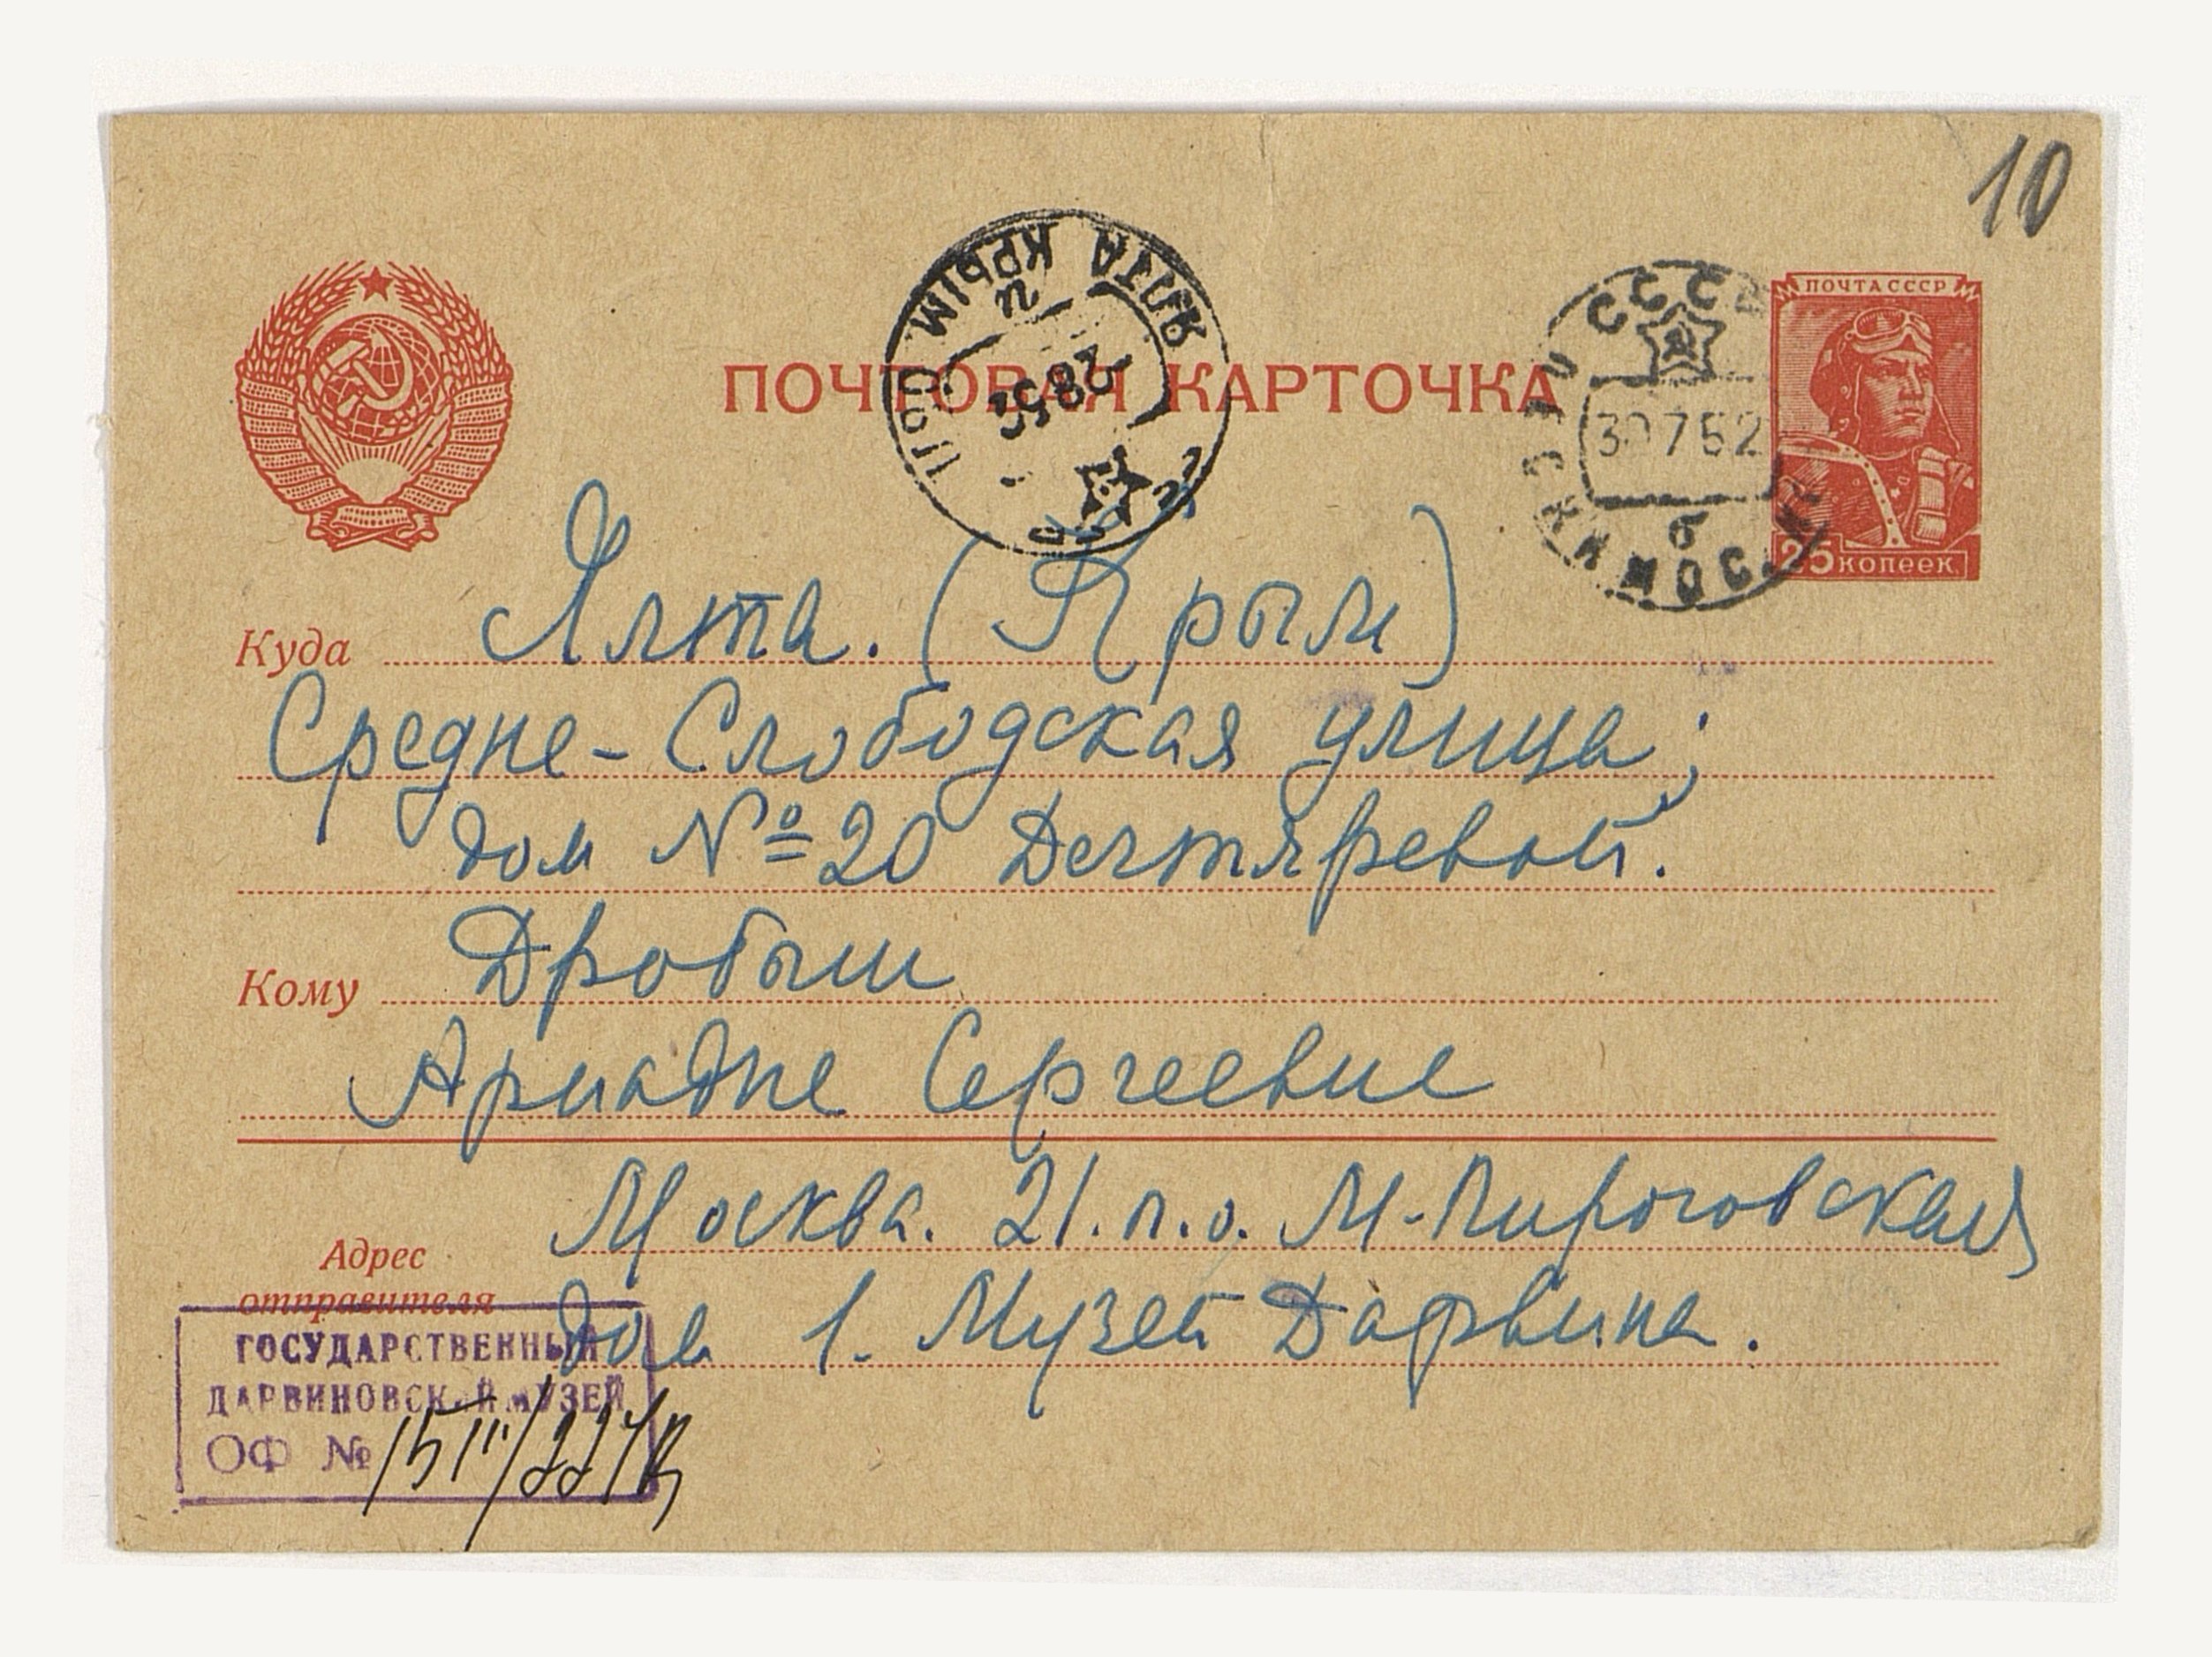 10
ПОЧТА СССР
25 копеек
ЯЛТА КРЫМ
2 8 52
СССР
30 7 52
МОСКВА
б
ПОЧТОВАЯ КАРТОЧКА
Куда Ялта. (Крым)
Средне-Слободская улица;
дом № 20 Дегтяревой.
Кому Дробыш
Ариадне Сергеевне
Москва. 21. п.о. М-Пироговская
Адрес
отправителя дом 1. Музей Дарвина.
ГОСУДАРСТВЕННЫЙ
ДАРВИНОВСКИЙ МУЗЕЙ
ОФ №